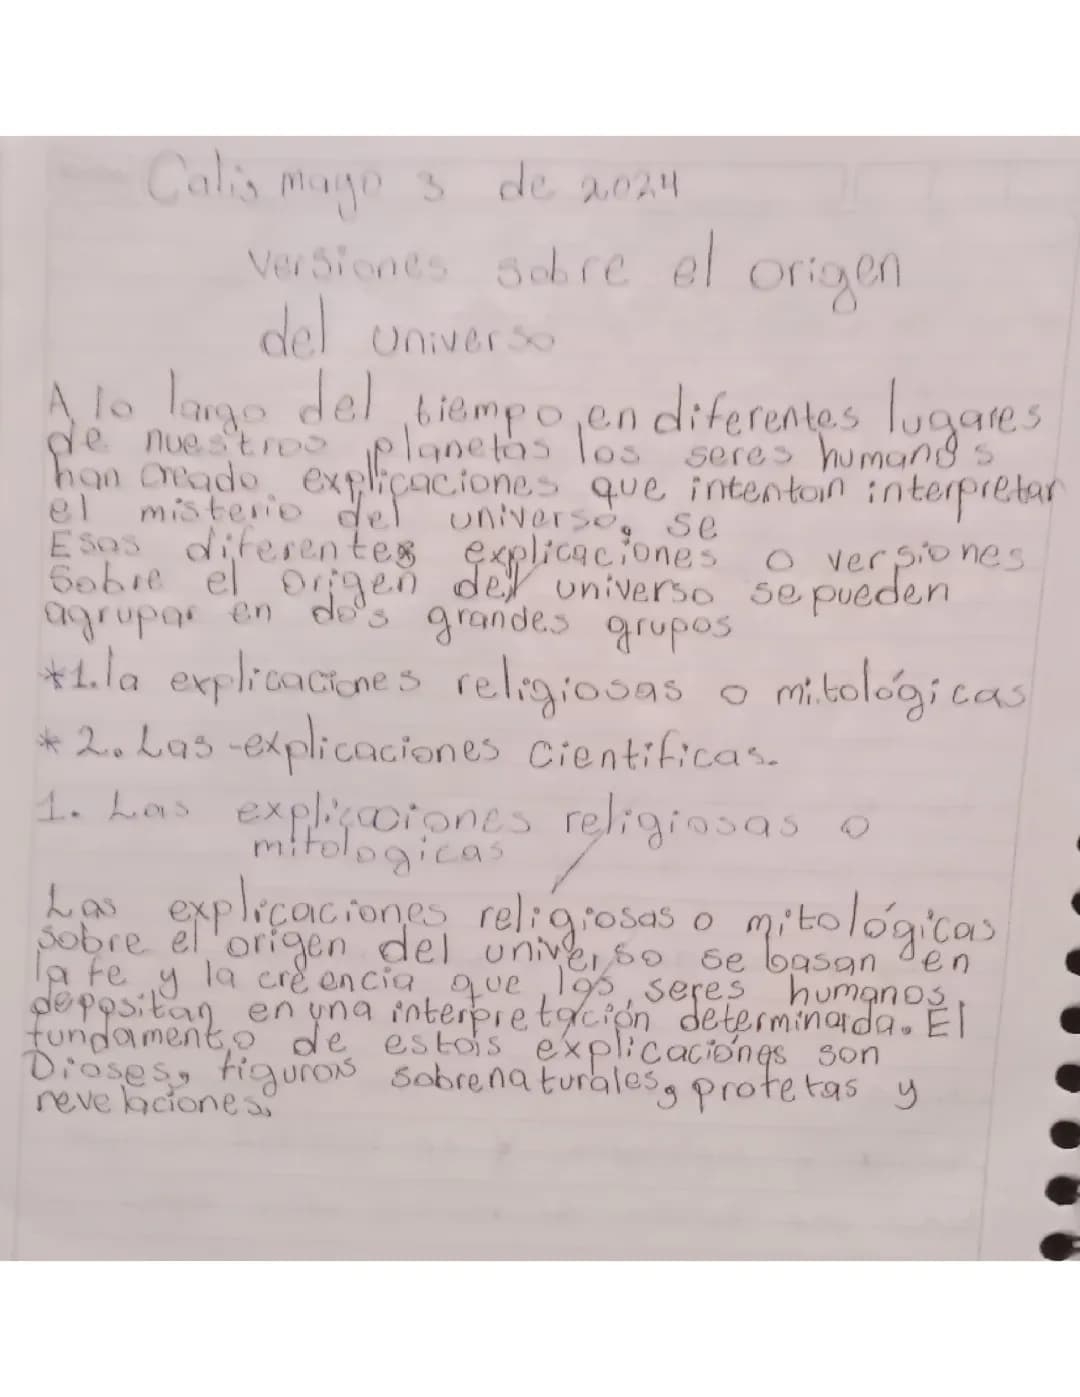 Cali, mayo 3 de 2024
versiones sobre el origen
del universo
A lo largo del tiempo, en diferentes lugares
de nuestros planetas los seres humanos
han creado explicaciones que intentan interpretar
el misterio del universo. se
Esas diferentes explicaciones o versiones
Sobre el origen del universo se pueden
agrupar en dos grandes grupos
*1. la explicaciones religiosas o mitológicas
* 2. Las explicaciones Científicas.
1. Las explicaciones religiosas o
mitologicas
Las explicaciones religiosas o mitológicas
sobre el origen del universo se basan en
la fe y la creencia que los seres humanos
depositan en una interpretación determinada. El
fundamento de estas explicaciones son
Dioses, figuras sobrenaturales, profetas y
revelaciones.